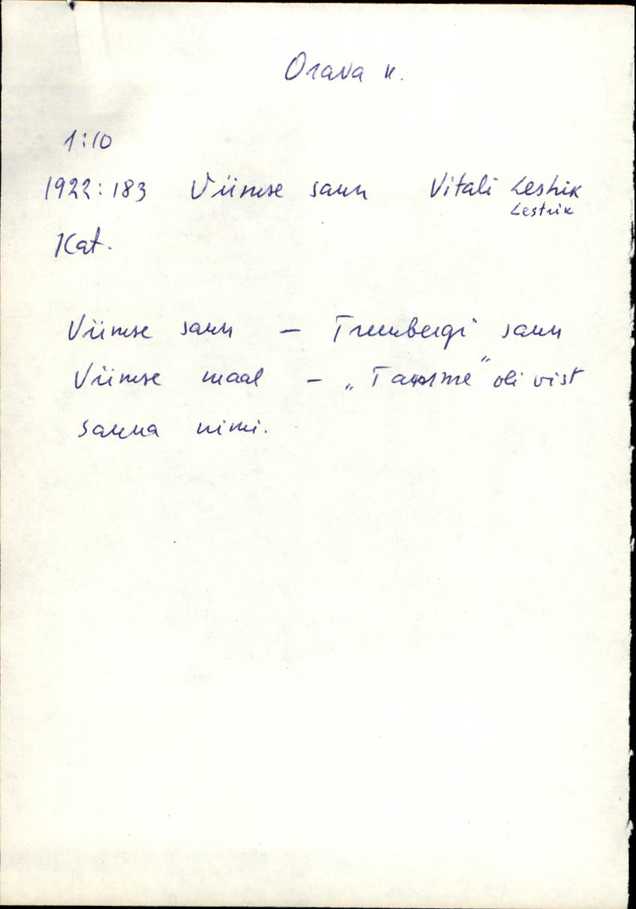 Orava k.
1:10
1922:183 Viimse saun Vitali Lestrik
Lestrik
Kat.
Viimse saun – Treumbergi saun
Viimse maal – „Tamme" oli vist
sauna nimi.